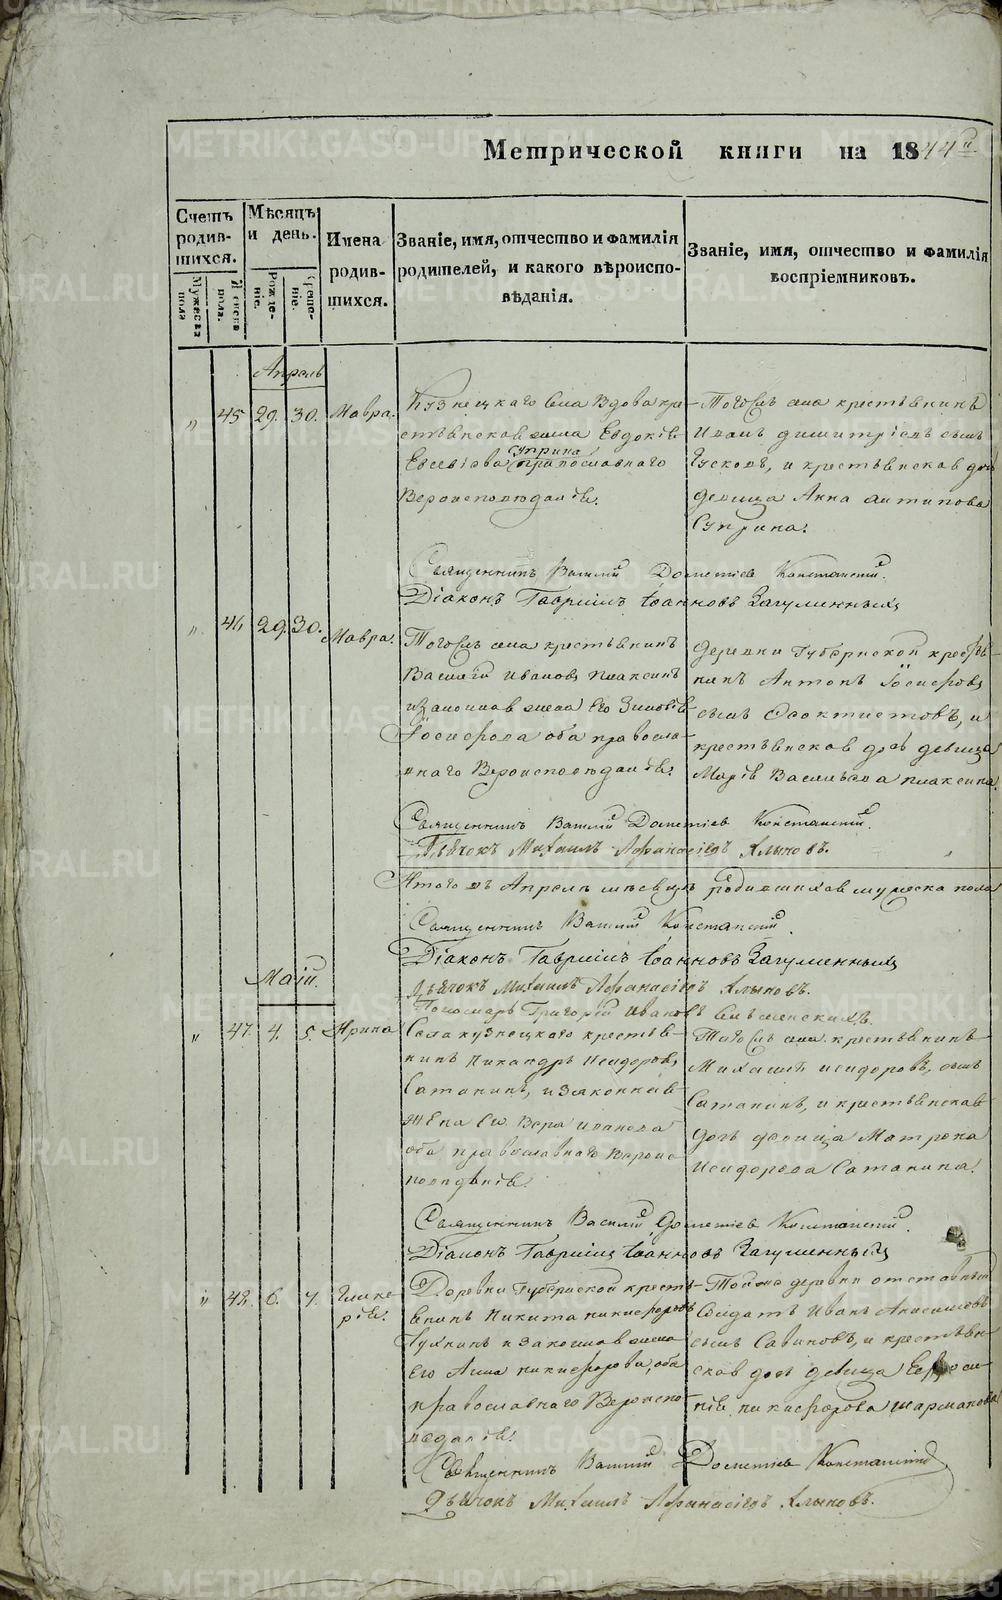 Метрической книги на 1844й
Счетъ родив-шихся.
Мужеска пола
Женска пола.
Мѣсяцъ и день.
Рожде-ніе.
Креще-ніе.
Имена родив-шихся.
Званіе, имя, отчество и фамилія родителей, и какого вѣроиспо-вѣданія.
Званіе, имя, отчество и фамилія воспріемниковъ.
Апрель
" 45 29. 30. Мавра.
Кузнецкаго села Вдова кре-
стьянская жена Евдокія
Евсевіева Суприна православнаго
Вероисповѣданія.
Тогожъ села крестьянинъ
Иванъ димитріевъ сынъ
Гусковъ, и крестьянская дочь
девица Анна антипова
Суприна.
Священникъ Василій Дометіевъ Констанскій.
Діаконъ Гавріилъ Іоанновъ Загуменныхъ
" 46 29. 30. Мавра.
Тогожъ села крестьянинъ
Василій Ивановъ плаксинъ
изаконная жена Его Зиновія
Іосифова оба правосла-
внаго Вероисповѣданія.
деревни Губернской кресть-
нинъ Антонъ Іосифовъ
сынъ Феоктистовъ, и
крестьянская дочь девица
Марія Васильева плаксина.
Священникъ Василій Дометіевъ Констанскій.
Дьячокъ Михаилъ Афанасіевъ Хлыновъ.
Итого въ Апреле месяце родившихся мужеска пола
Священникъ Василій Констанскій.
Діаконъ Гавріилъ Іоанновъ Загуменныхъ
Дьячокъ Михаилъ Афанасіевъ Хлыновъ.
Пономарь Григорій Ивановъ
Маій.
" 47. 4. 5. Ирина
Села кузнецкаго крестья-
нинъ Никандръ Исидоровъ
Сатанинъ, изаконная
жена Ег. Вера иванова
оба православнаго Вероис-
поведанія.
Тогожъ села крестьянинъ
Михаилъ исидоровъ, сынъ
Сатанинъ, и крестьянская
дочь девица Матрона
Исидорова Сатанина.
Священникъ Василій Дометіевъ Констанскій.
Діаконъ Гавріилъ Іоанновъ Загуменныхъ
" 48. 6. 7. Глике-рія.
Деревни Губернской кресть-
янинъ Никита никифоровъ
изаконная жена
его Анна никифорова, оба
православнаго Вероиспо-
веданія.
Тойже деревни отставный
Солдатъ Иванъ
сынъ Савиновъ, и крестьян-
ская дочь девица Евфроси-
нія никифорова шарманова
Священникъ Василій Дометіевъ Констанскій
Дьячокъ Михаилъ Афанасіевъ Хлыновъ.
METRIKI.GASO-URAL.RU